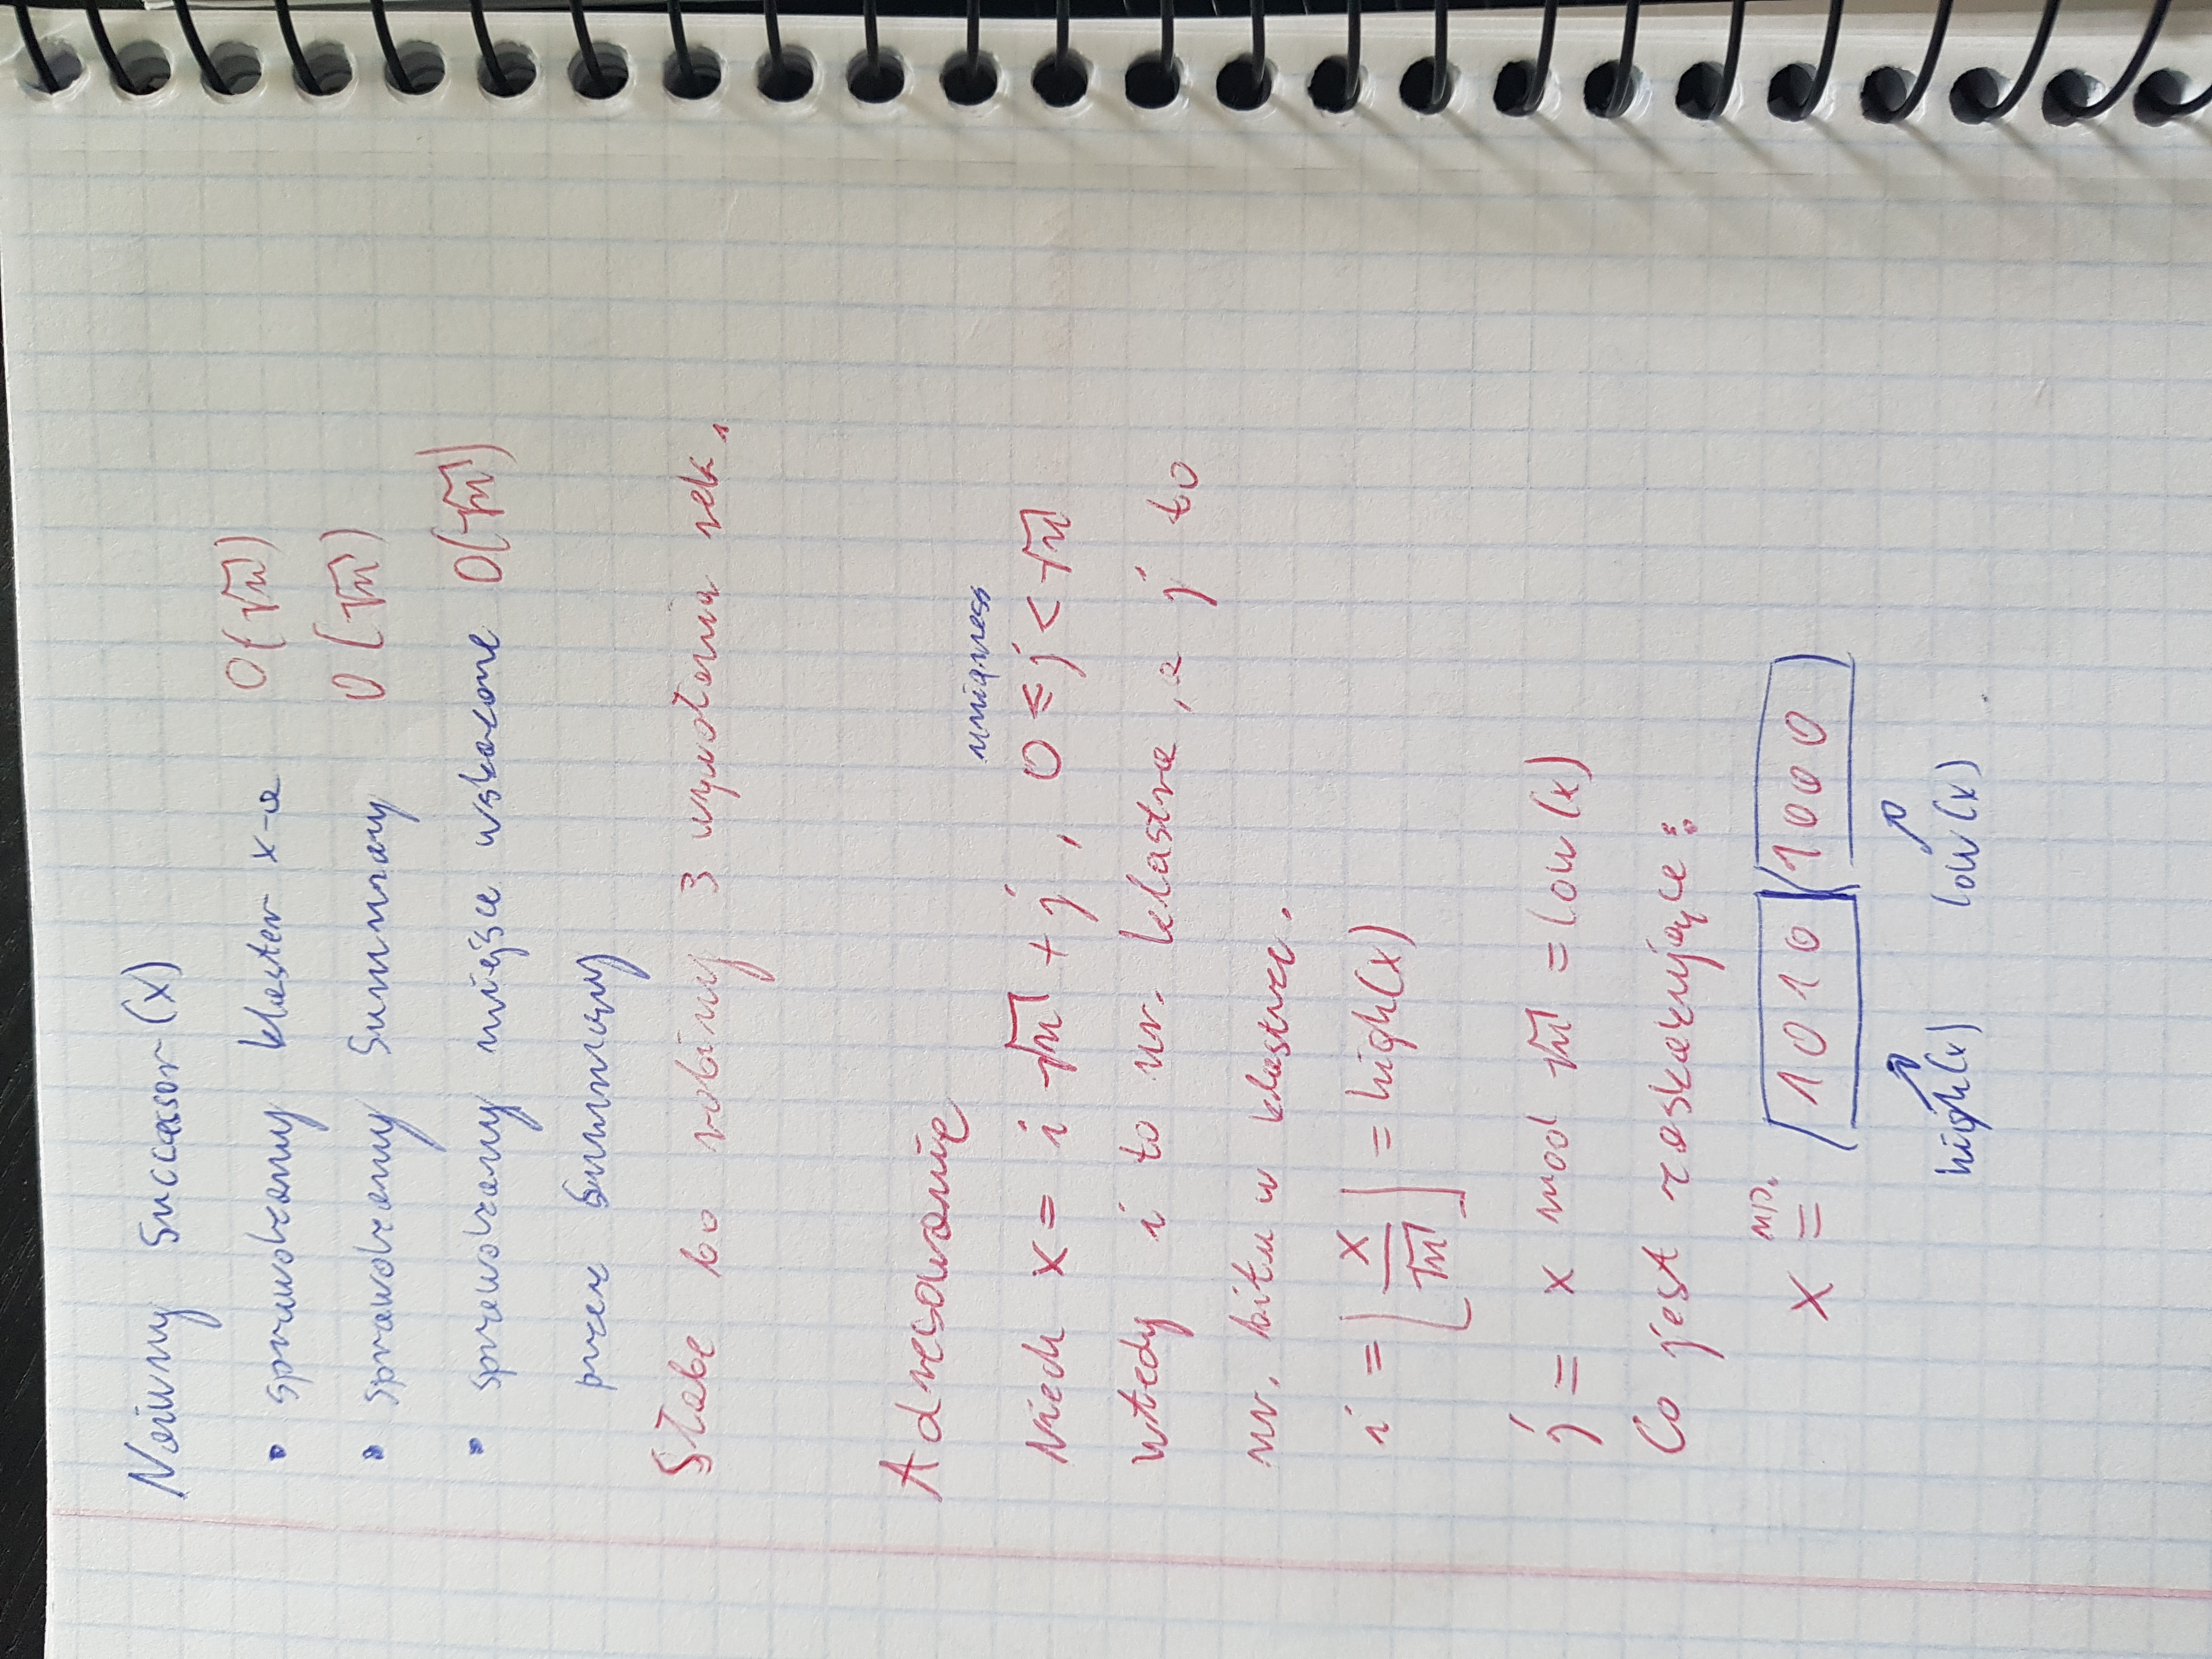 Naiwny Succesor(x)
• sprawdzamy klaster x-a O(√n)
• sprawdzamy Summary O(√n)
• sprawdzamy miejsce wskazane O(√n)
przez Summary
Słabe bo robimy 3 wywołania rek.
Adresowanie
uniqness
Niech x = i √n + j, 0 ≤ j < √n
wtedy i to nr. klastra, a j to
nr. bitu w klastrze.
i = ⌊x/√n⌋ = high(x)
j = x mod √n = low(x)
Co jest zaskakujące:
x =ⁿᵖ· (1010)(1000)
high(x) low(x)